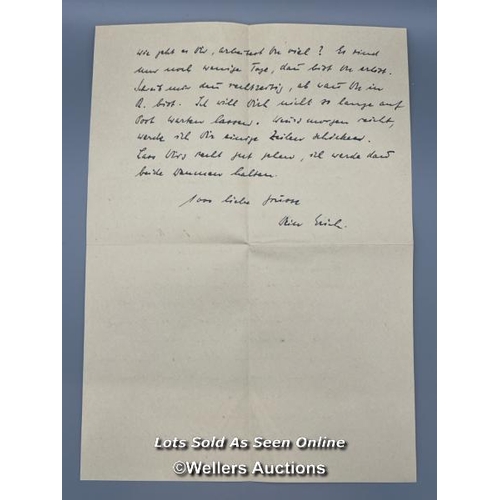 wie geht es Dir, arbeitest Du viel? Es sind
nur noch wenige Tage, dann bist Du erlöst.
Schreib mir dann rechtzeitig, ab wann Du in
B. bist. Ich will Dich nicht so lange auf
Post warten lassen. Wenns morgen reicht,
werde ich Dir einige Zeilen schicken.
Lass Dirs recht gut gehen, ich werde dann
beide Daumen halten.
1000 liebe Grüsse
Dein Erich.
Lots Sold As Seen Online
©Wellers Auctions